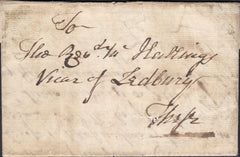 To
The Revd Mr Hastings
Vicar of Ledbury